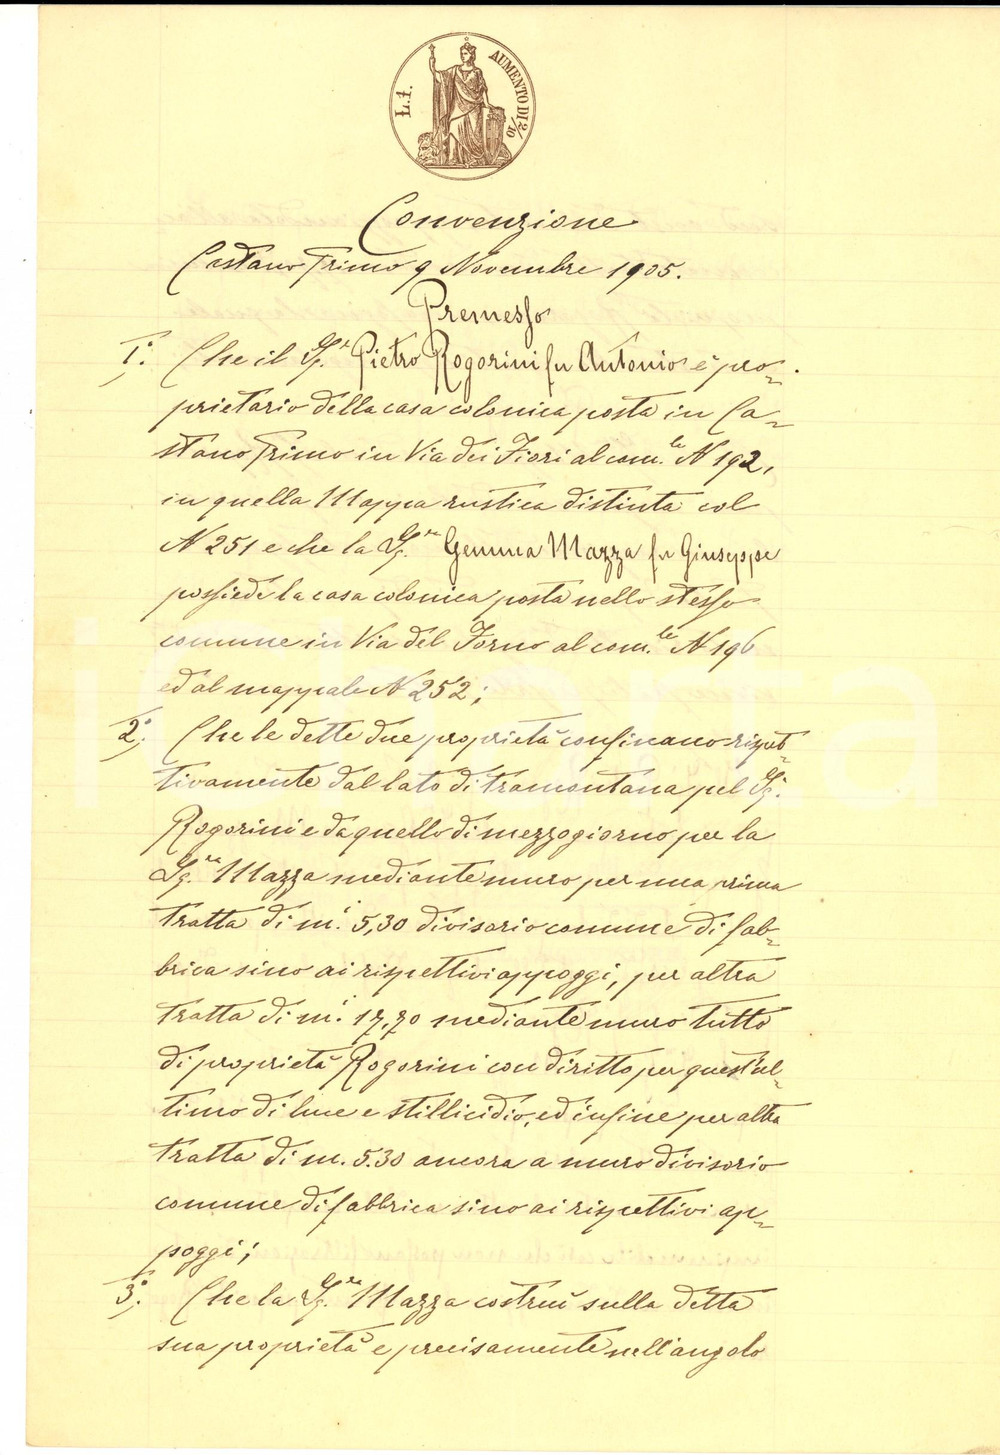 L.1.
AUMENTO DI 2/10
Convenzione
Castano Primo 9 Novembre 1905.
Premesso
1º. Che il Sigr. Pietro Rogorini fu Antonio è pro-
prietario della casa colonica posta in Ca-
stano Primo in Via dei Fiori al com.le N 192,
in quella Mappa rustica distinta col
N 251 e che la Sig.ra Gemma Mazza fu Giuseppe
possiede la casa colonica posta nello stesso
comune in Via del Forno al com.le N 196
ed al mappale N 252;
2º. Che le dette due proprietà confinano rispet-
tivamente dal lato di tramontana pel Sigr.
Rogorini e da quello di mezzogiorno per la
Sig.ra Mazza mediante muro per una prima
tratta di m.i 5,30 divisorio comune di fab-
brica sino ai rispettivi appoggi, per altra
tratta di m.i 17,70 mediante muro tutto
di proprietà Rogorini con diritto per quest'ul-
timo di luce e stillicidio, ed infine per altra
tratta di m. 5.30 ancora a muro divisorio
comune di fabbrica sino ai rispettivi ap-
poggi;
3º. Che la Sig.ra Mazza costruì sulla detta
sua proprietà e precisamente nell'angolo